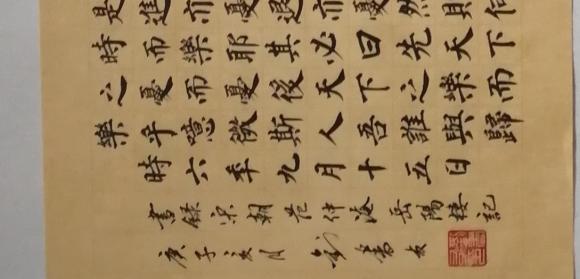 是進亦憂退亦憂然則何
時而樂耶其必曰先天下
之憂而憂後天下之樂而
樂乎噫微斯人吾誰與歸
時六年九月十五日
書錄宋朝范仲淹岳陽樓記
庚子 月